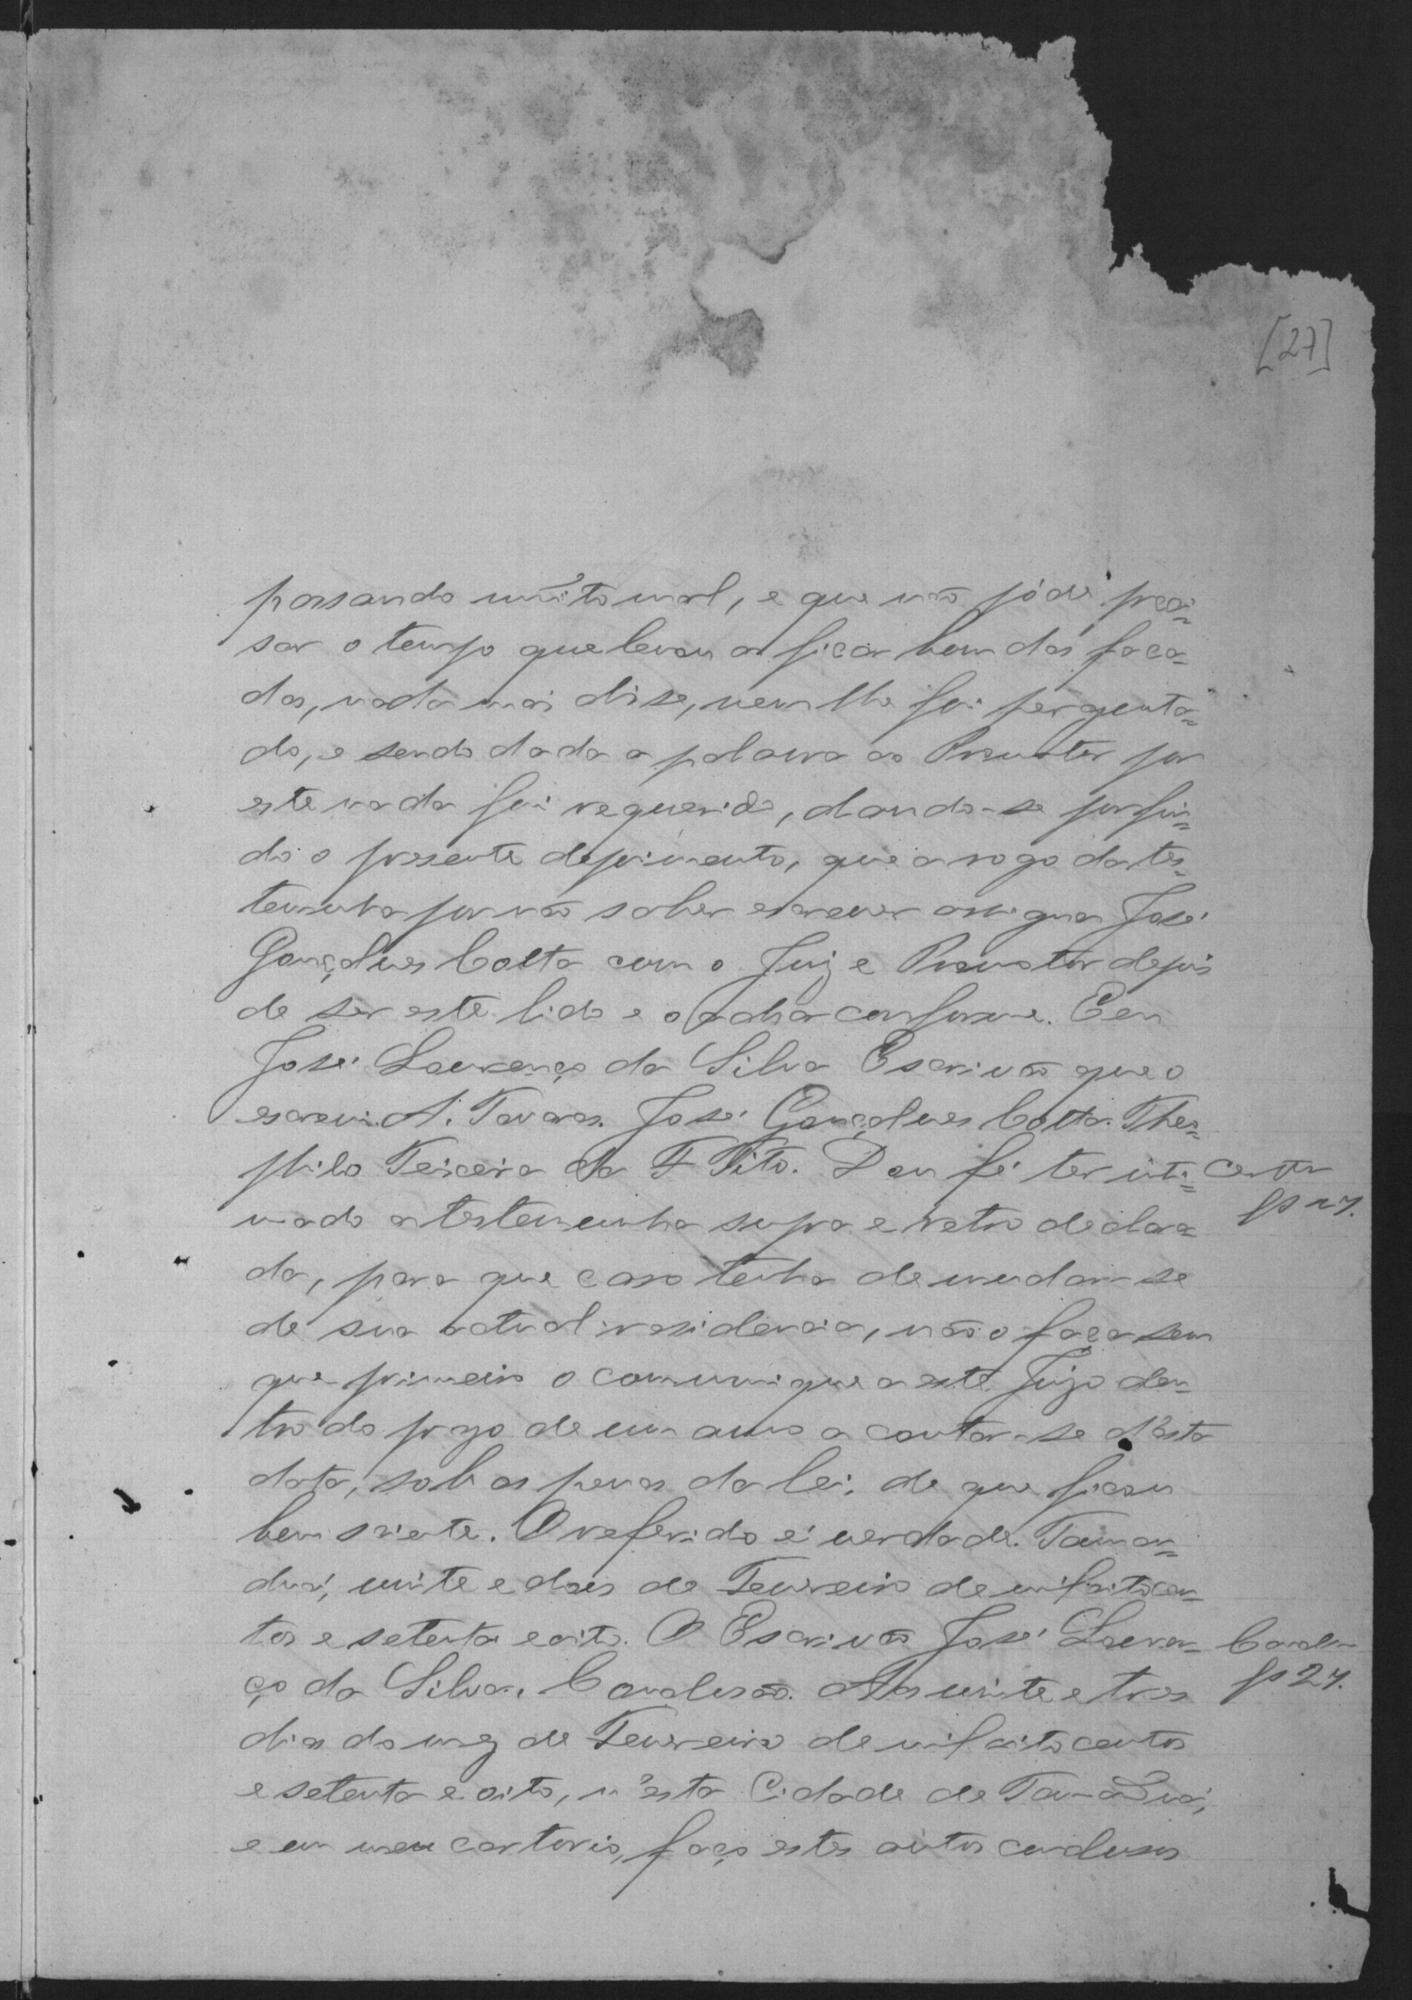 [27]
passando muito mal, e que não póde preci=
sar o tempo que levou a ficar bom das faca=
das, nada mais disse, nem lhe foi pergunta=
do, e sendo dada a palavra ao Promotor por
este nada foi requerido, dando-se por fin=
do o presente depoimento, que a rogo da tes=
temunha por não saber escrever assigna José
Gonçalves Cotta com o Juiz e Promotor depois
de ser este lido e o achar conforme. E eu
José Lourenço da Silva Escrivão que o
escrevi. A. Tavares. José Gonçalves Cotta. Theo=
philo Teixeira da F Tito. Dou fé ter inti=
Certam
fs 27.
mado a testemunha supra e retro declara=
da, para que caso tenha de mudar-se
de sua actual residencia, não o faça sem
que primeiro o communique a este Juizo den=
tro do prazo de um anno a contar-se d'esta
data, sob as penas da lei; de que ficou
bem sciente. O referido é verdade. Taman=
duá, vinte e dois de Fevereiro de mil oitocen=
tos e setenta e oito. O Escrivão José Louren=
Conclm
fs 27.
ço da Silva. Conclusão. Aos vinte e tres
dias do mez de Fevereiro de mil oitocentos
e setenta e oito, n'esta Cidade de Tamanduá,
e em meu cartorio, faço estes autos conclusos